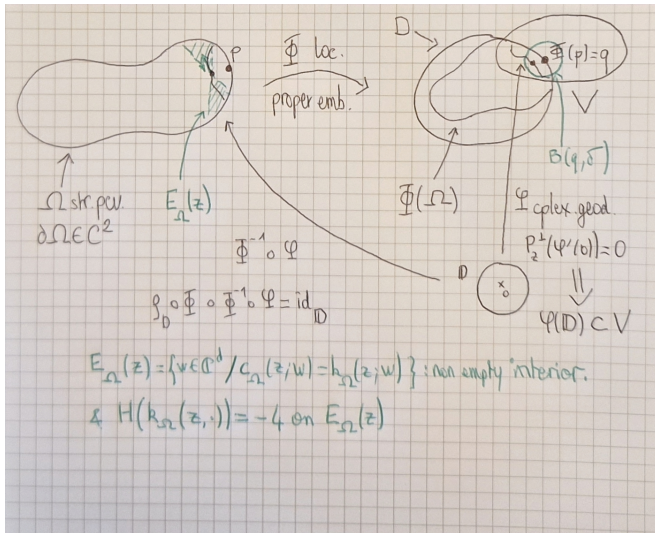 p
Φ loc.
proper emb.
D
Φ(p)=q
V
B(q,δ)
Ω str. pcv.
∂Ω∈C²
E_Ω(z)
Φ(Ω)
φ cplex. geod.
P_z^⊥(φ'(0))=0
⇓
φ(𝔻)⊂V
Φ⁻¹∘φ
𝔻
0
ρ_D∘Φ∘Φ⁻¹∘φ=id_𝔻
E_Ω(z)={v∈ℂ^d/c_Ω(z;v)=k_Ω(z;v)}: non empty interior.
& H(k_Ω(z,·))=-4 on E_Ω(z)